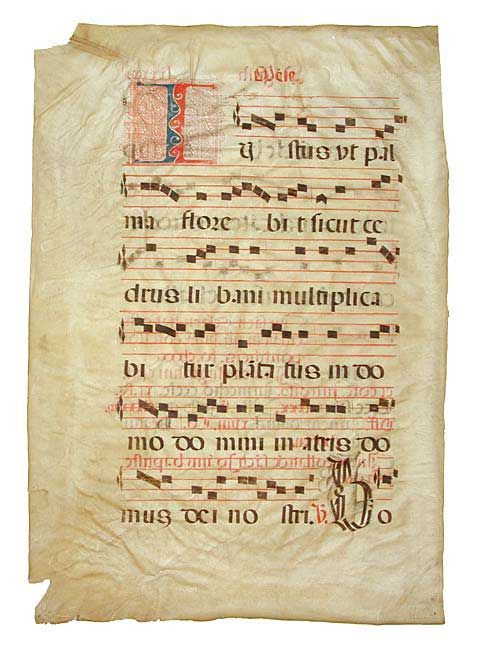 I u stus vt pal
ma flore bit sicut ce
drus li bani multiplica
bi tur plãta tus in do
mo do mini in atris do
mus dei no stri. V. Bo